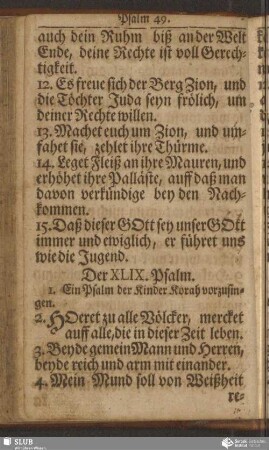 Psalm 49.
auch dein Ruhm biß an der Welt
Ende, deine Rechte ist voll Gerech-
tigkeit.
12. Es freue sich der Berg Zion, und
die Töchter Juda seyn frölich, um
deiner Rechte willen.
13. Machet euch um Zion, und um-
fahet sie, zehlet ihre Thürme.
14. Leget Fleiß an ihre Mauren, und
erhöhet ihre Palläste, auff daß man
davon verkündige bey den Nach-
kommen.
15. Daß dieser GOtt sey unser GOtt
immer und ewiglich, er führet uns
wie die Jugend.
Der XLIX. Psalm.
1. Ein Psalm der Kinder Korah vorzusin-
gen.
2. HOeret zu alle Völcker, mercket
auff alle, die in dieser Zeit leben.
3. Beyde gemein Mann und Herren,
beyde reich und arm mit einander.
4. Mein Mund soll von Weißheit
re-
SLUB